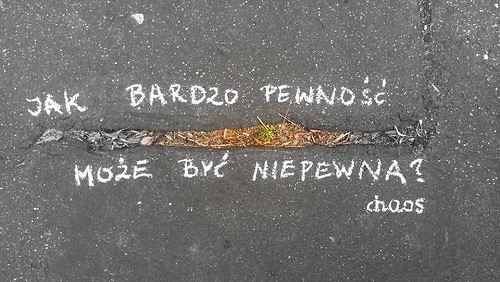 JAK BARDZO PEWNOŚĆ
MOŻE BYĆ NIEPEWNA?
chaos